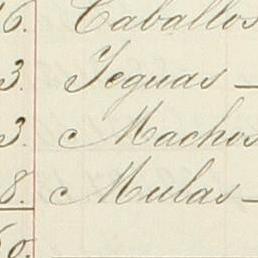 6. Caballos
3. Yeguas —
3. Machos
8. Mulas —
60.